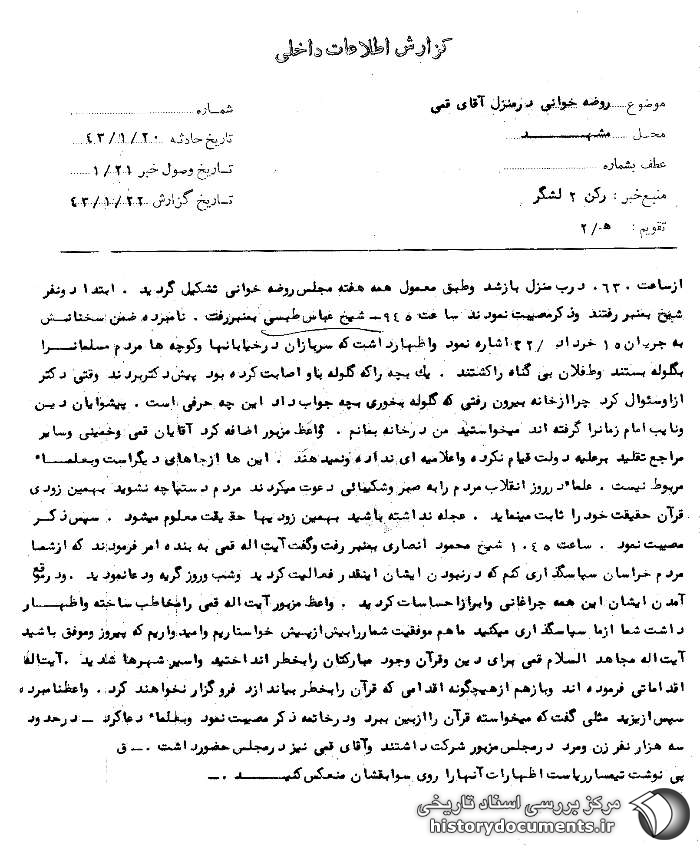 گزارش اطلاعات داخلی
موضوع روضه خوانی درمنزل آقای قمی
شماره
محل مشهد
تاریخ حادثه ۴۳/۱/۲۰
عطف بشماره
تاریخ وصول خبر ۱/۲۱
منبع خبر : رکن ۲ لشگر
تاریخ گزارش ۴۳/۱/۲۲
تقویم : ۲/ه
ازساعت ۰۶۳۰ درب منزل بازشد وطبق معمول همه هفته مجلس روضه خوانی تشکیل گردید . ابتدا دونفر
شیخ بمنبر رفتند وذکرمصیبت نمودند ساعت ۹۴۵ – شیخ عباس طبسی بمنبررفت . نامبرده ضمن سخنانش
به جریان ۱۵ خرداد /۴۲ اشاره نمود واظهارداشت که سربازان درخیابانها وکوچه ها مردم مسلمانرا
بگلوله بستند وطفلان بی گناه راکشتند . یك بچه راکه گلوله باو اصابت کرده بود پیش دکتربردند وقتی دکتر
ازاوسئوال کرد چراازخانه بیرون رفتی که گلوله بخوری بچه جواب داد این چه حرفی است . پیشوایان دین
ونایب امام زمانرا گرفته اند میخواستید من درخانه بمانم . واعظ مزبور اضافه کرد آقایان قمی وخمینی وسایر
مراجع تقلید برعلیه دولت قیام نکرده واعلامیه ای نداده ونمیدهند . این ها ازجاهای دیگراست وبعلماء
مربوط نیست . علماء درروز انقلاب مردم رابه صبر وشکیبائی دعوت میکردند مردم دستپاچه نشوید بهمین زودی
قرآن حقیقت خودرا ثابت مینماید . عجله نداشته باشید بهمین زودیها حقیقت معلوم میشود . سپس ذکر
مصیبت نمود . ساعت ۱۰۴۵ شیخ محمود انصاری بمنبر رفت وگفت آیت اله قمی به بنده امر فرمودند که ازشما
مردم خراسان سپاسگذاری کنم که درنبودن ایشان اینقدر فعالیت کردید وشب وروز گریه ودعانمودید .ودرموقع
آمدن ایشان این همه چراغانی وابرازاحساسات کردید . واعظ مزبور آیت اله قمی رامخاطب ساخته واظهار
داشت شما ازما سپاسگذاری میکنید ماهم موفقیت شمارابیش ازپیش خواستاریم وامیدواریم که پیروز وموفق باشید
آیت اله مجاهد السلام قمی برای دین وقرآن وجود مبارکتان رابخطر انداختید واسیر شهرها شدید .آیت‌اله
اقداماتی فرموده اند وبازهم ازهیچگونه اقدامی که قرآن رابخطر بیاندازد فروگزار نخواهند کرد . واعظ‌نامبرده
سپس ازیزید مثلی گفت که میخواسته قرآن راازبین ببرد ودرخاتمه ذکر مصیبت نمود وبعلماء دعاکرد – درحدود
سه هزار نفر زن ومرد درمجلس مزبور شرکت داشتند وآقای قمی نیز درمجلس حضورداشت .– ق
پی نوشت تیمسارریاست اظهارات آنهارا روی سوابقشان منعکس کنید .–
مرکز بررسی اسناد تاریخی
historydocuments.ir